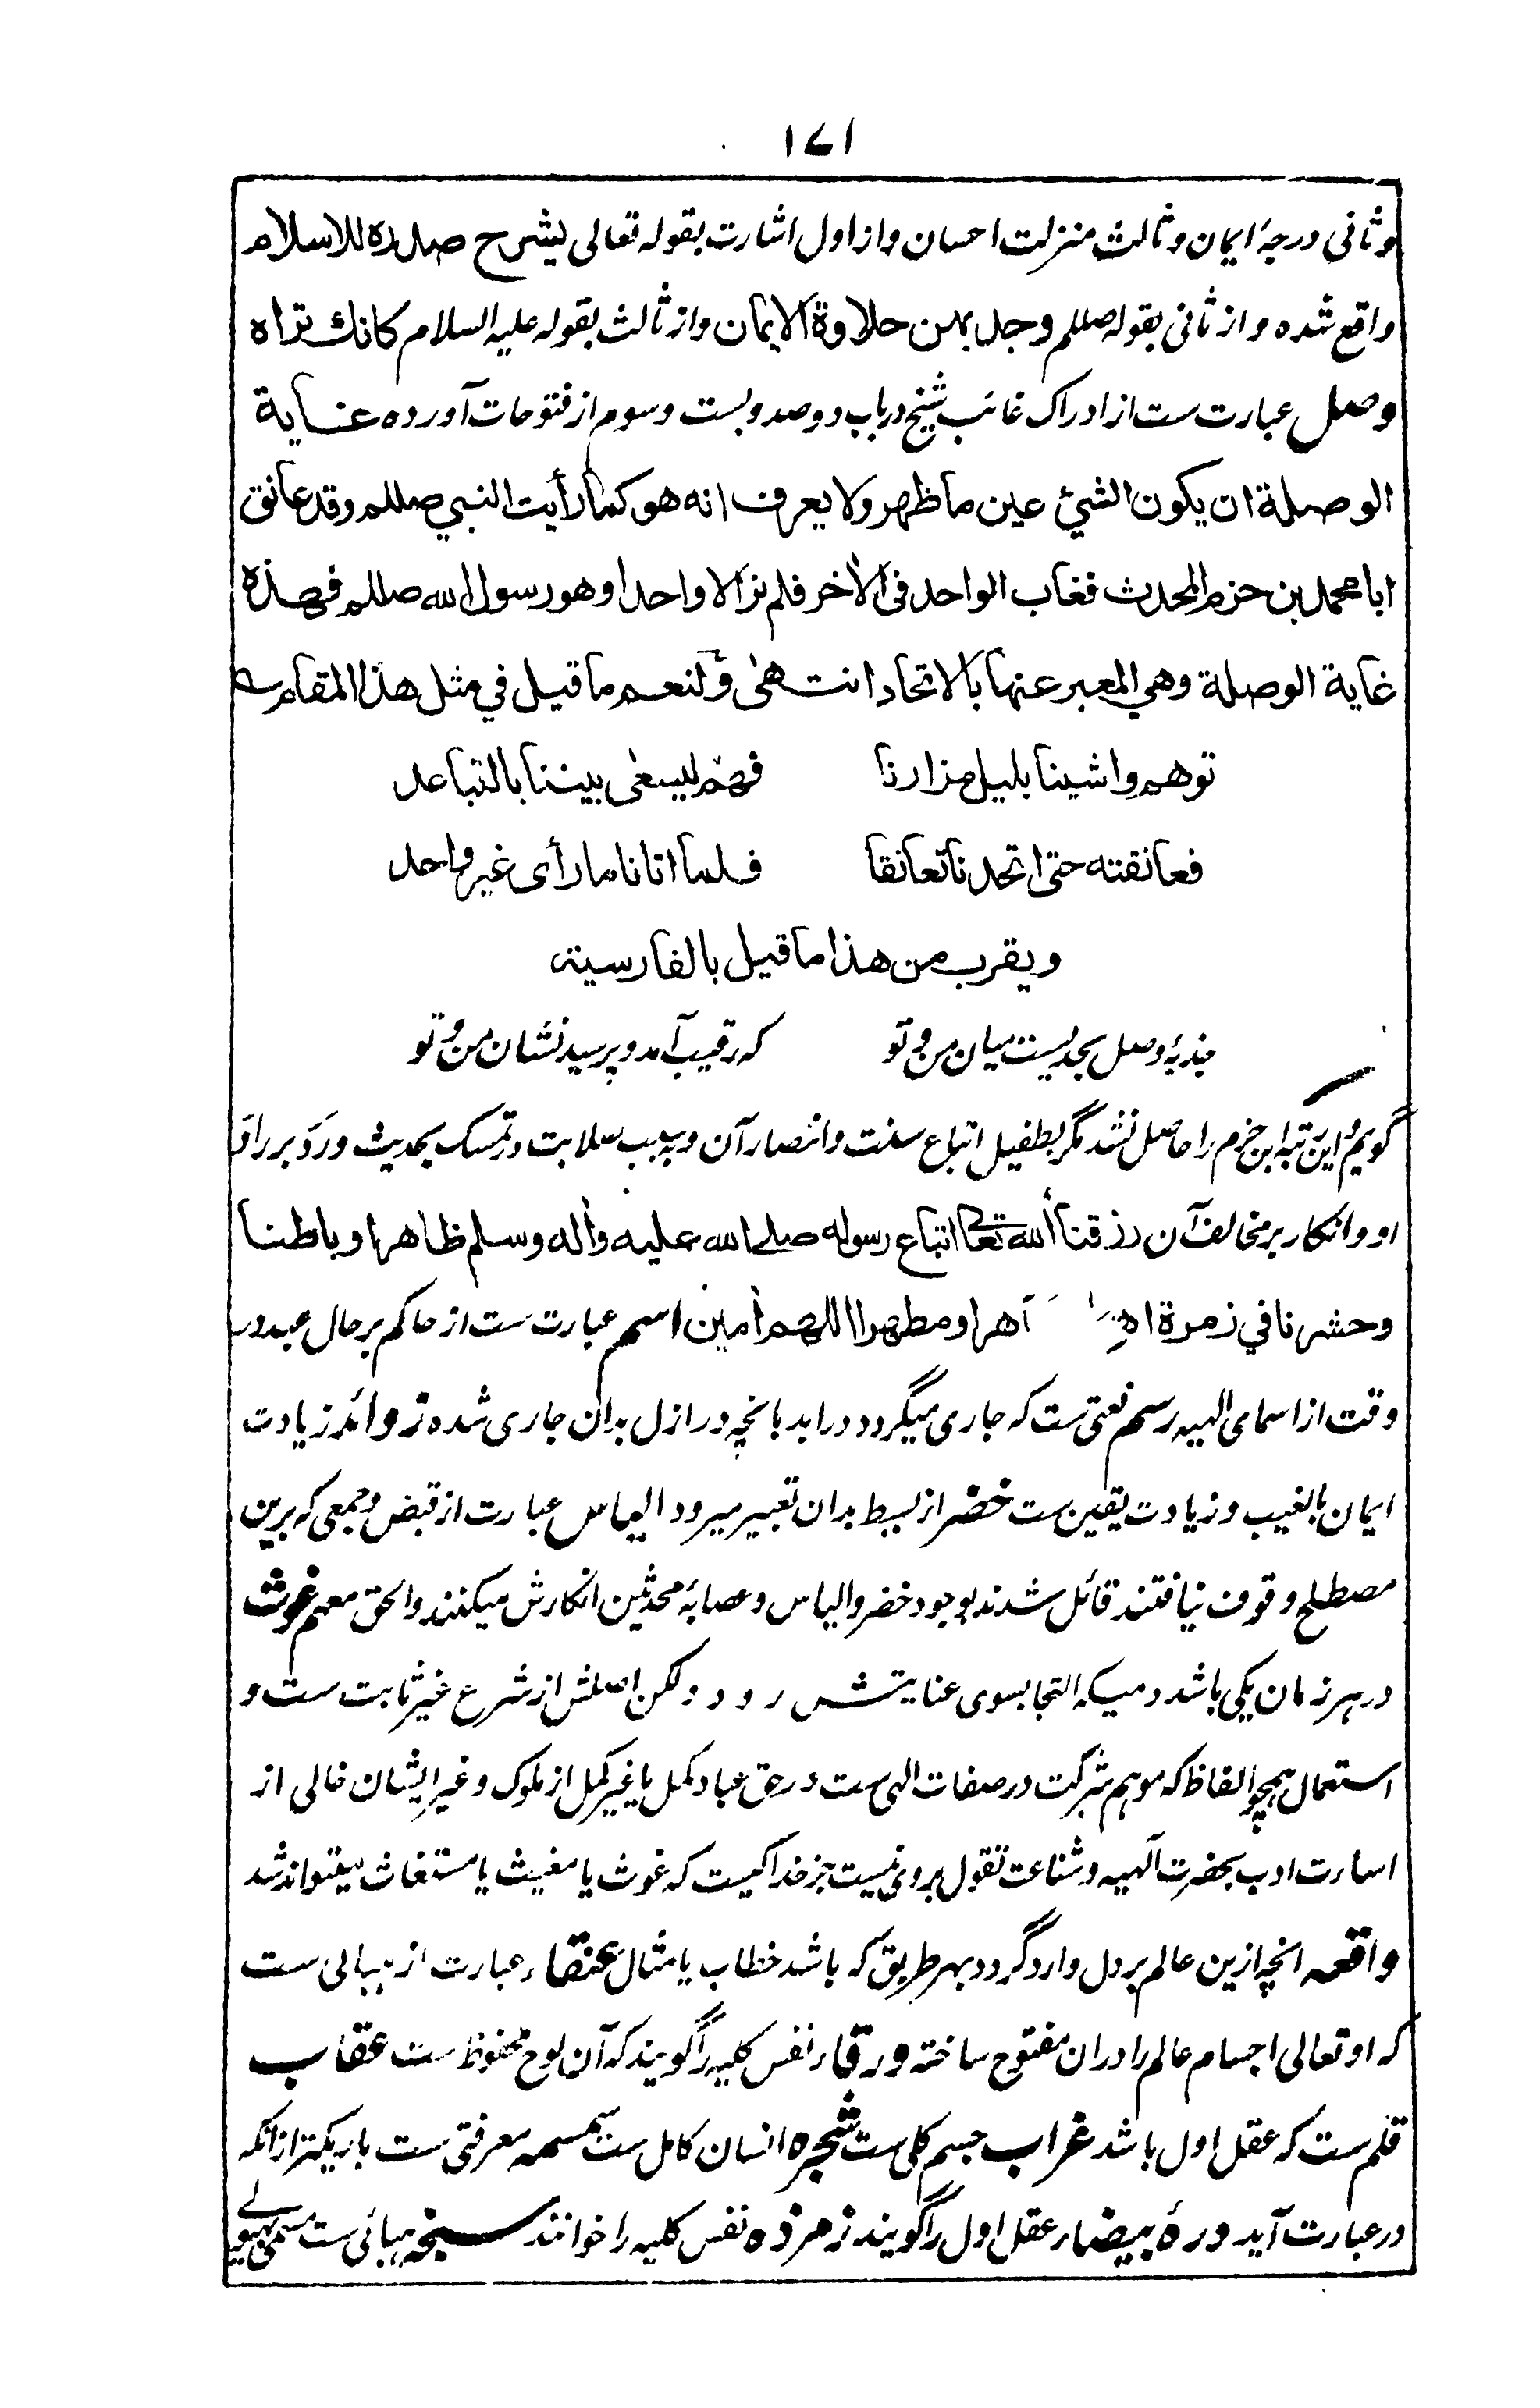 ١٧١
وثانی درجهٔ ایمان وثالث منزلت احسان واز اول اشارت بقوله تعالی یشرح صدره للاسلام
واقع شده واز ثانی بقوله صللم وجد بهن حلاوة الایمان واز ثالث بقوله علیه السلام کانك تراه
وصل عبارت ست از ادراک غائب شیخ در باب دوصد وبست وسوم از فتوحات آورده غاية
الوصلة ان يكون الشئ عين ما ظهر ولا يعرف انه هو كما رأيت النبي صللم وقد عانق
ابا محمد بن حزم المحدث فغاب الواحد فى الآخر فلم نر الا واحدا وهو رسول الله صللم فهذه
غاية الوصلة وهي المعبر عنها بالاتحاد انتهى ولنعم ما قيل في مثل هذا المقام
توهم واشينا بليل مزارنا فهم ليسعى بيننا بالتباعد
فعانقته حتى اتحدنا تعانقا فلما اتانا ما رأى غير واحد
ويقرب من هذا ما قيل بالفارسية
جذبهٔ وصل بحدیست میان من وتو که رقیب آمد و پرسید نشان من وتو
گویم واین رتبه ابن حزم را حاصل نشد مگر بطفیل اتباع سنت وانتصار آن وبسبب صلابت در تمسک بحدیث ورد بر
او وانکار بر مخالف آن رزقنا الله تعالى اتباع رسوله صلى الله عليه وآله وسلم ظاهرا وباطنا
وحشرنا في زمرة ومطهرا اللهم آمين اسم عبارت ست از حاکم بر حال عبد در
وقت از اسمای الهیه رسم نعتی ست که جاری میگردد در ابد بانچه در ازل بدان جاری شده زوائد زیادت
ایمان بالغیب وزیادت یقین ست خضر از بسط بدان تعبیر میرود الیاس عبارت از قبض وجمعی که برین
مصطلح وقوف نیافتند قائل شدند بوجود خضر والیاس وعصابهٔ محدثین انکارش میکنند والحق معهم غوث
در هر زمان یکی باشد دمیکه التجا بسوی عنایتش رود ولکن اصلش از شرع غیر ثابت ست و
استعمال همچو الفاظ که موهم شرکت در صفات الهی ست در حق عباد کمل یا غیر کمل از ملوک وغیر ایشان خالی از
اساءت ادب بحضرت آلهیه وشناعت تقول برو نیست جز خدا کیست که غوث یا مغیث یا مستغاث میتواند شد
واقعه انچه ازین عالم بر دل وارد گردد بهر طریق که باشد خطاب یا مثال عنقاء عبارت از هبائی ست
که او تعالی اجسام عالم را دران مفتوح ساخته ورقاء نفس کلیه را گویند که آن لوح محفوظ ست عقاب
قلم ست که عقل اول باشد غراب جسم کلی ست شجره انسان کامل ست سمسمه معرفتی ست باریکتر ازانکه
در عبارت آید درهٔ بیضاء عقل اول را گویند زمرذه نفس کلیه را خوانند سبخه هبائی ست مسمی بهیولی